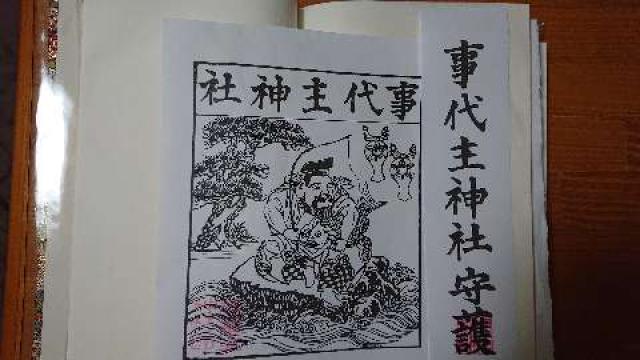 事代主神社
事代主神社守護